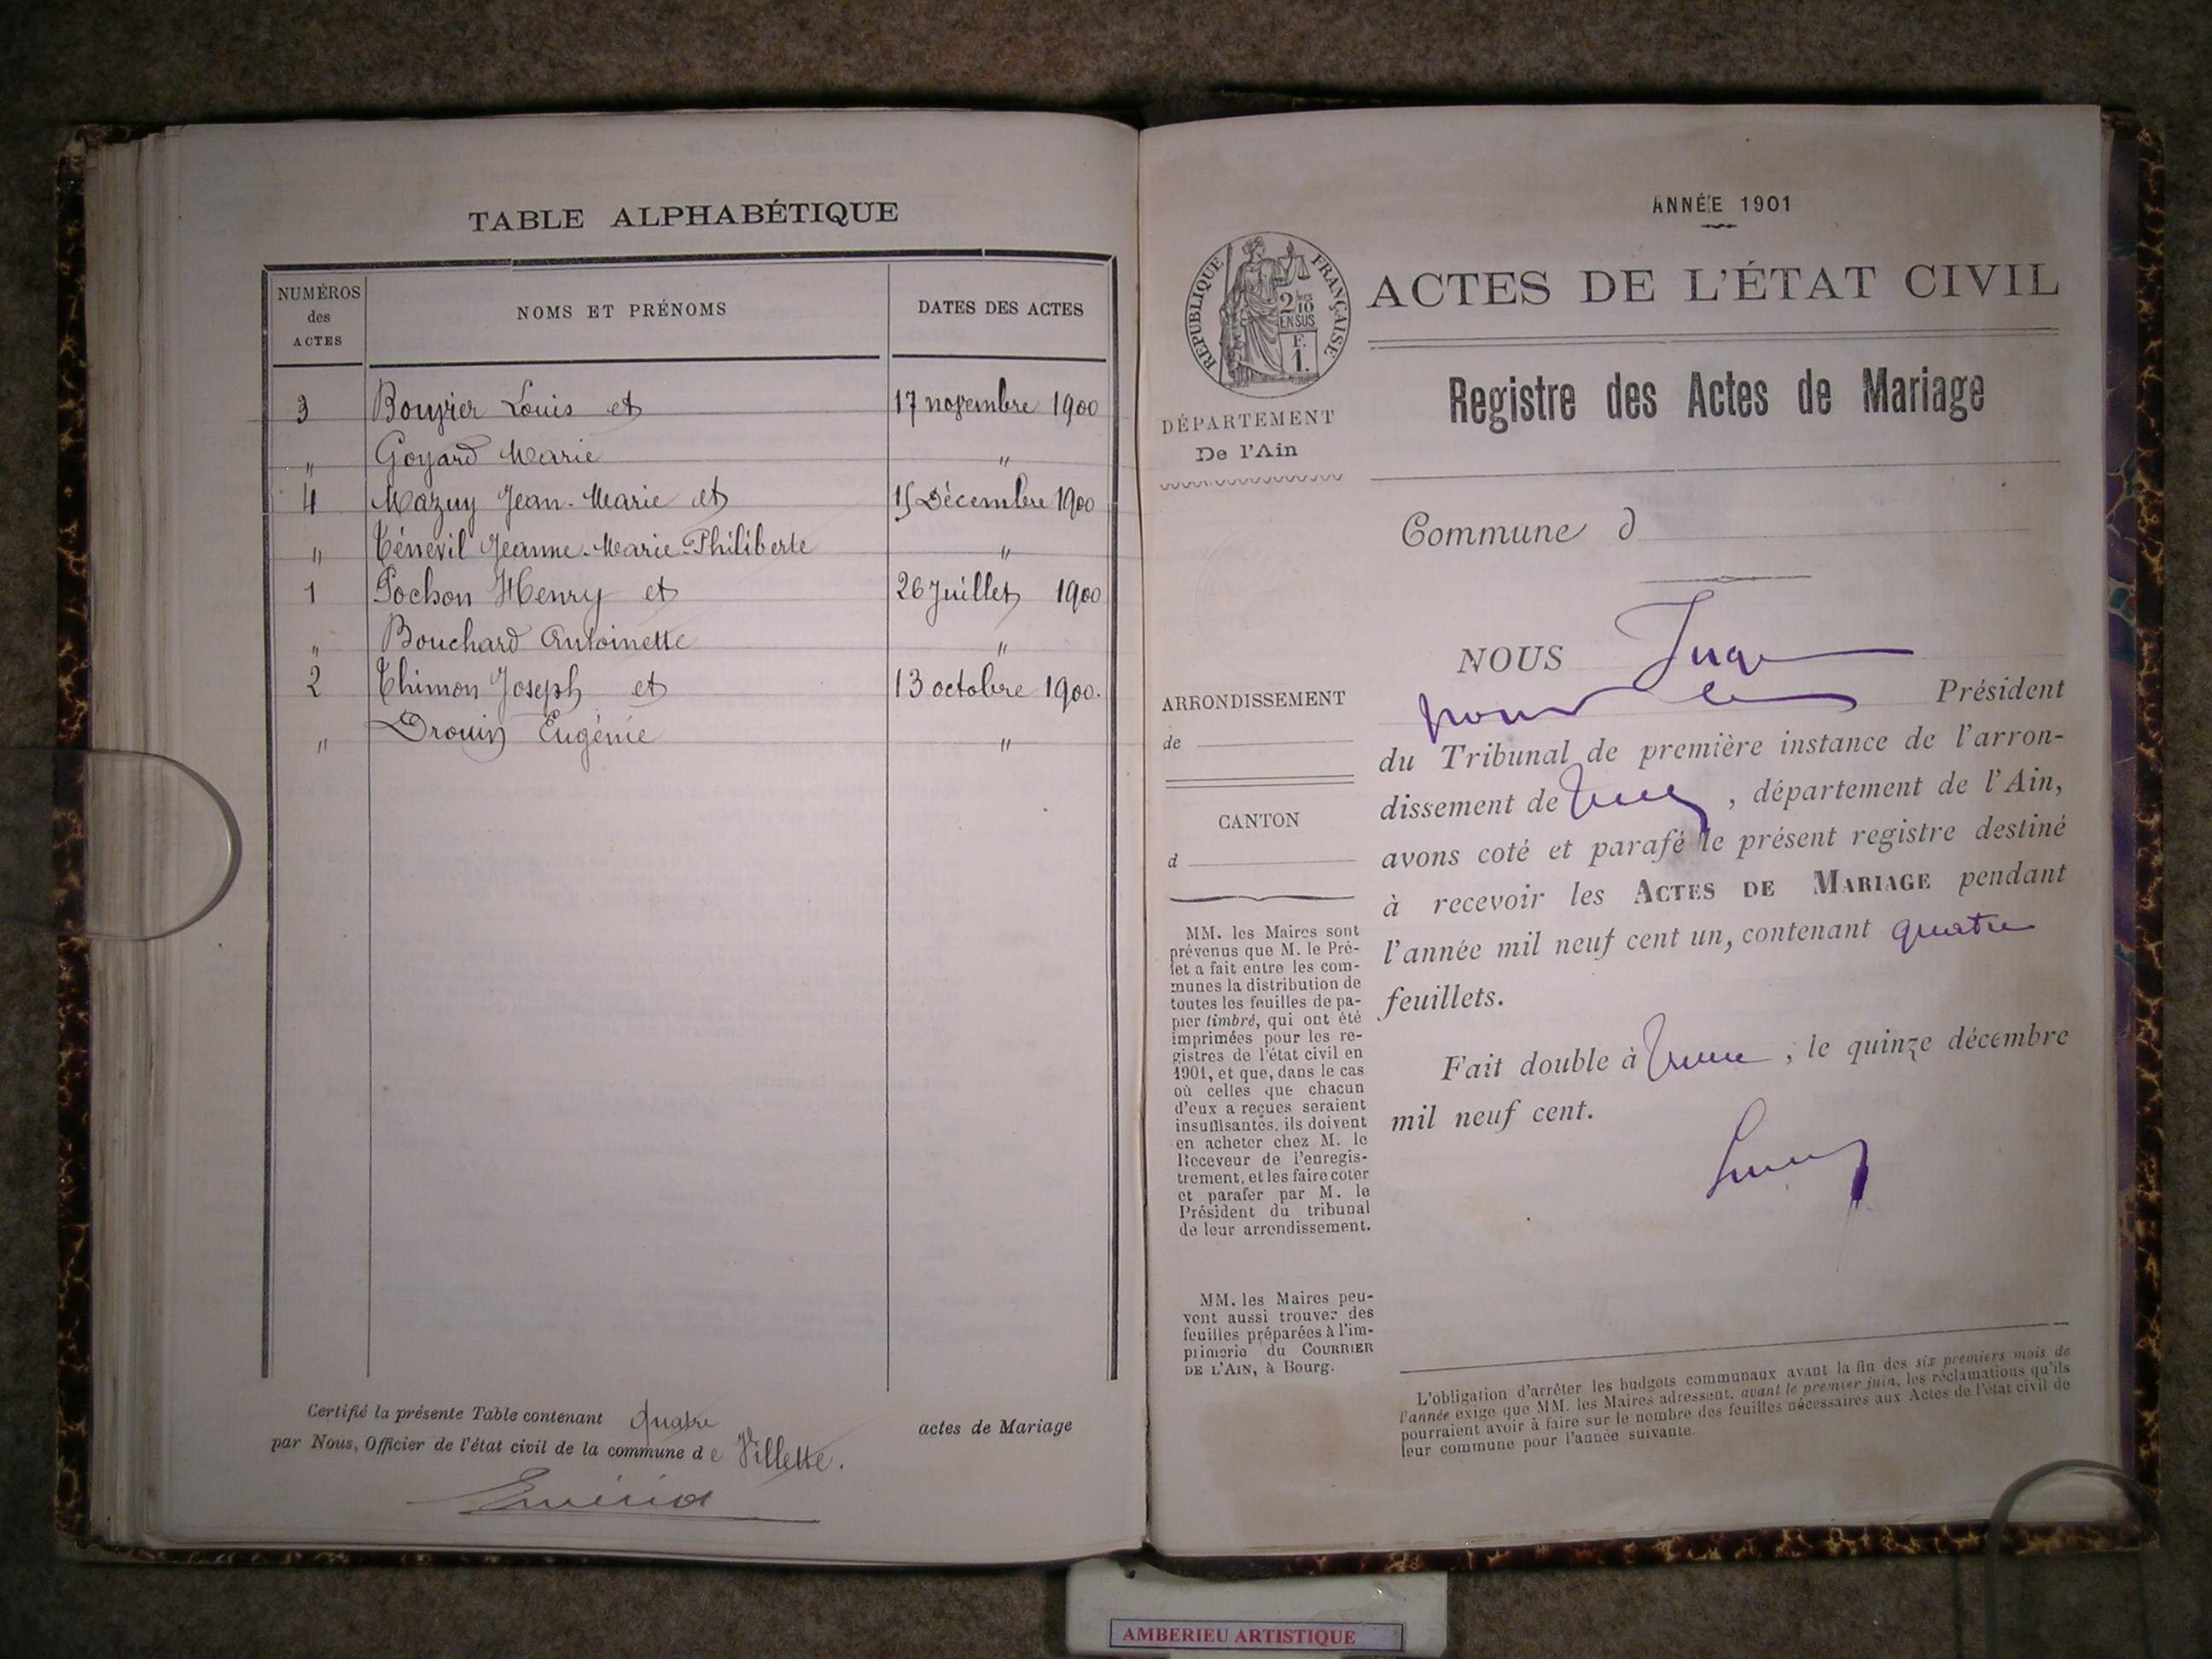 TABLE ALPHABÉTIQUE
NUMÉROS des ACTES
NOMS ET PRÉNOMS
DATES DES ACTES
3 Bouvier Louis et 17 novembre 1900
" Goyard Marie "
4 Mazuy Jean-Marie et 15 Décembre 1900
" Ténevil Jeanne-Marie-Philiberte "
1 Pochon Henry et 26 Juillet 1900
" Bouchard Antoinette "
2 Thimon Joseph et 13 octobre 1900.
" Drouin Eugénie "
Certifié la présente Table contenant quatre actes de Mariage
par Nous, Officier de l'état civil de la commune de Villette.
ANNÉE 1901
RÉPUBLIQUE FRANÇAISE
2/10
EN SUS
F.
1.
ACTES DE L'ÉTAT CIVIL
Registre des Actes de Mariage
DÉPARTEMENT
De l'Ain
Commune d
ARRONDISSEMENT
de
CANTON
d
MM. les Maires sont
prévenus que M. le Pré-
fet a fait entre les com-
munes la distribution de
toutes les feuilles de pa-
pier timbré, qui ont été
imprimées pour les re-
gistres de l'état civil en
1901, et que, dans le cas
où celles que chacun
d'eux a reçues seraient
insuffisantes, ils doivent
en acheter chez M. le
Receveur de l'enregis-
trement, et les faire coter
et parafer par M. le
Président du tribunal
de leur arrondissement.
MM. les Maires peu-
vent aussi trouver des
feuilles préparées à l'im-
primerie du COURRIER
DE L'AIN, à Bourg.
NOUS Juge
pour le Président
du Tribunal de première instance de l'arron-
dissement de , département de l'Ain,
avons coté et parafé le présent registre destiné
à recevoir les ACTES DE MARIAGE pendant
l'année mil neuf cent un, contenant quatre
feuillets.
Fait double à , le quinze décembre
mil neuf cent.
L'obligation d'arrêter les budgets communaux avant la fin des six premiers mois de
l'année exige que MM. les Maires adressent, avant le premier juin, les réclamations qu'ils
pourraient avoir à faire sur le nombre des feuilles nécessaires aux Actes de l'état civil de
leur commune pour l'année suivante.
AMBERIEU ARTISTIQUE